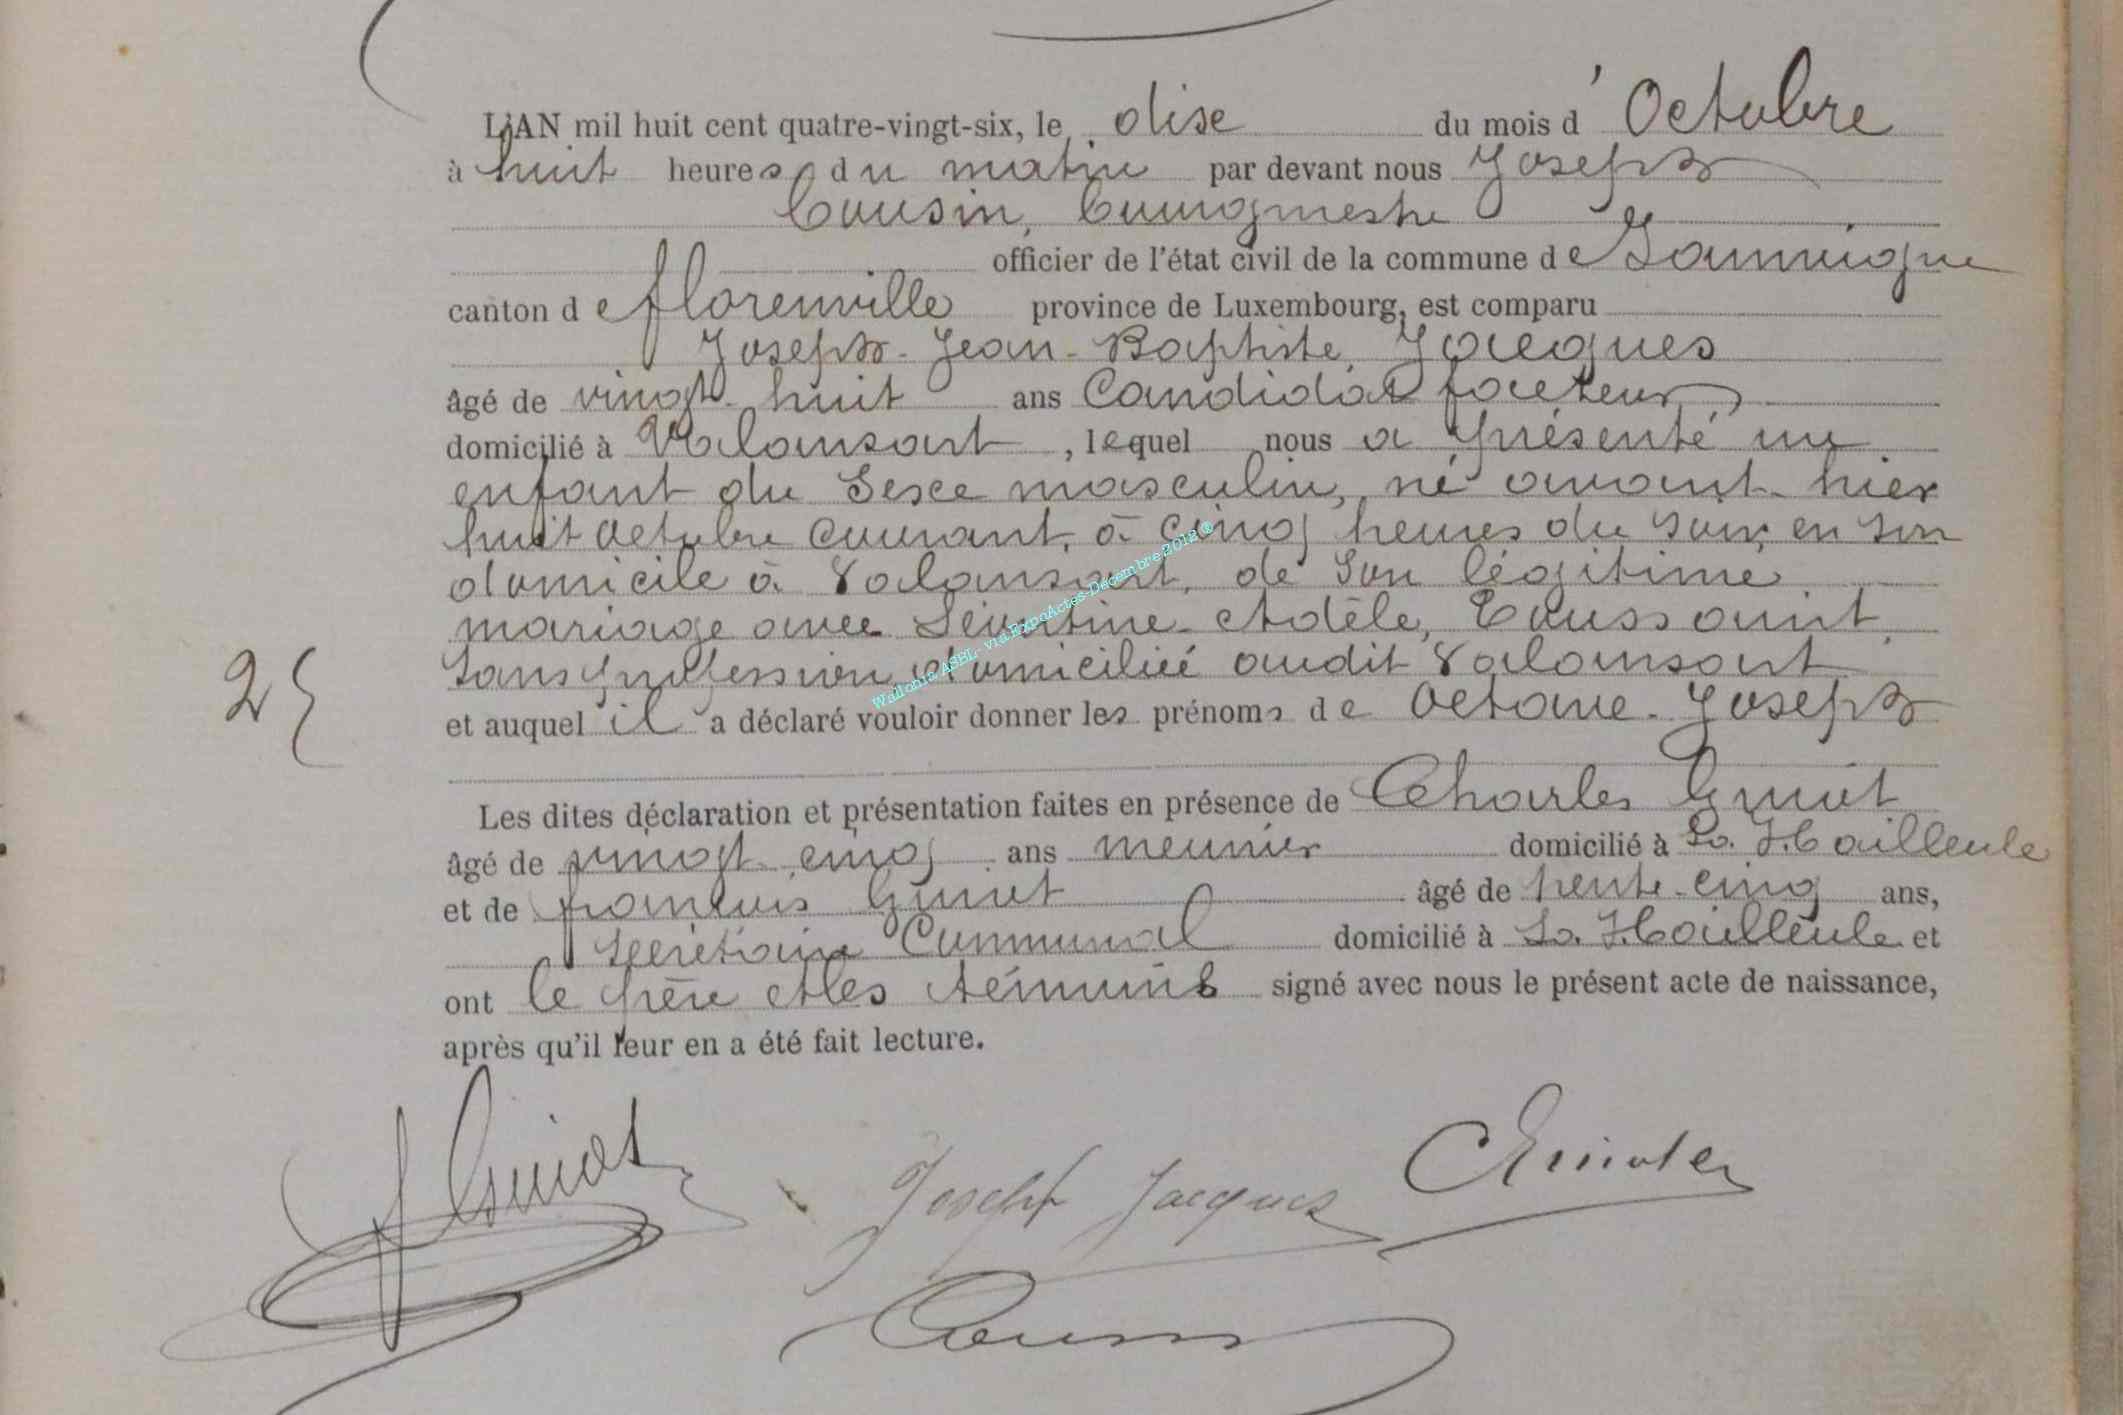 L'AN mil huit cent quatre-vingt-six, le dise du mois d'Octobre
à huit heures du matin par devant nous Joseph
Cousin, bourgmestre
officier de l'état civil de la commune de Jamoigne
canton de florenville province de Luxembourg, est comparu
Joseph-Jean-Baptiste Jacques
âgé de vingt-huit ans Candidat facteur
domicilié à Valansart, lequel nous a présenté un
enfant du sexe masculin, né avant-hier
huit octobre courant, à cinq heures du soir, en son
domicile à Valansart, de son légitime
mariage avec Léontine-Adèle, Toussaint,
sans profession, domiciliée audit Valansart
25
et auquel il a déclaré vouloir donner les prénoms de Octave-Joseph
Les dites déclaration et présentation faites en présence de Charles Guiot
âgé de vingt-cinq ans meunier domicilié à La Hailleule
et de françois Guiot âgé de trente-cinq ans,
secrétaire Communal domicilié à La Hailleule et
ont le père et les témoins signé avec nous le présent acte de naissance,
après qu'il leur en a été fait lecture.
f Guiot Joseph Jacques
Cousin
Wallonia ASBL - via ExpoActes-Décembre 2012®